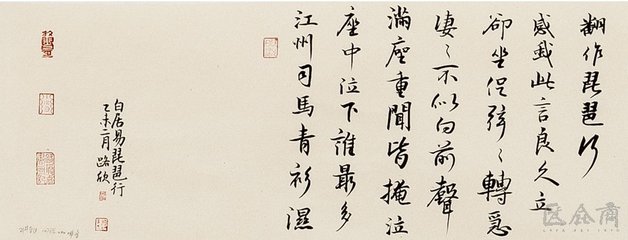 翻作琵琶行
感我此言良久立
卻坐促絃〻轉急
淒〻不似向前聲
滿座重聞皆掩泣
座中泣下誰最多
江州司馬青衫濕
白居易琵琶行
乙未二月路欣